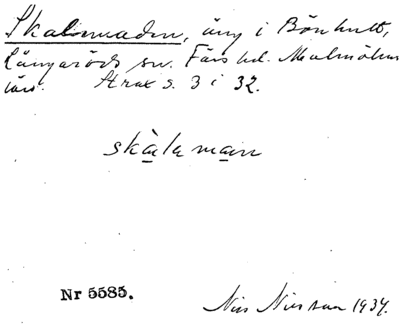 Skalamaden, äng i Bönhult,
Långaröds sn. Färs hd. Malmöhus
län. Strax s. 3 i 32.
skàlamaın
Nr 5585.
Nils Nilsson 1934.